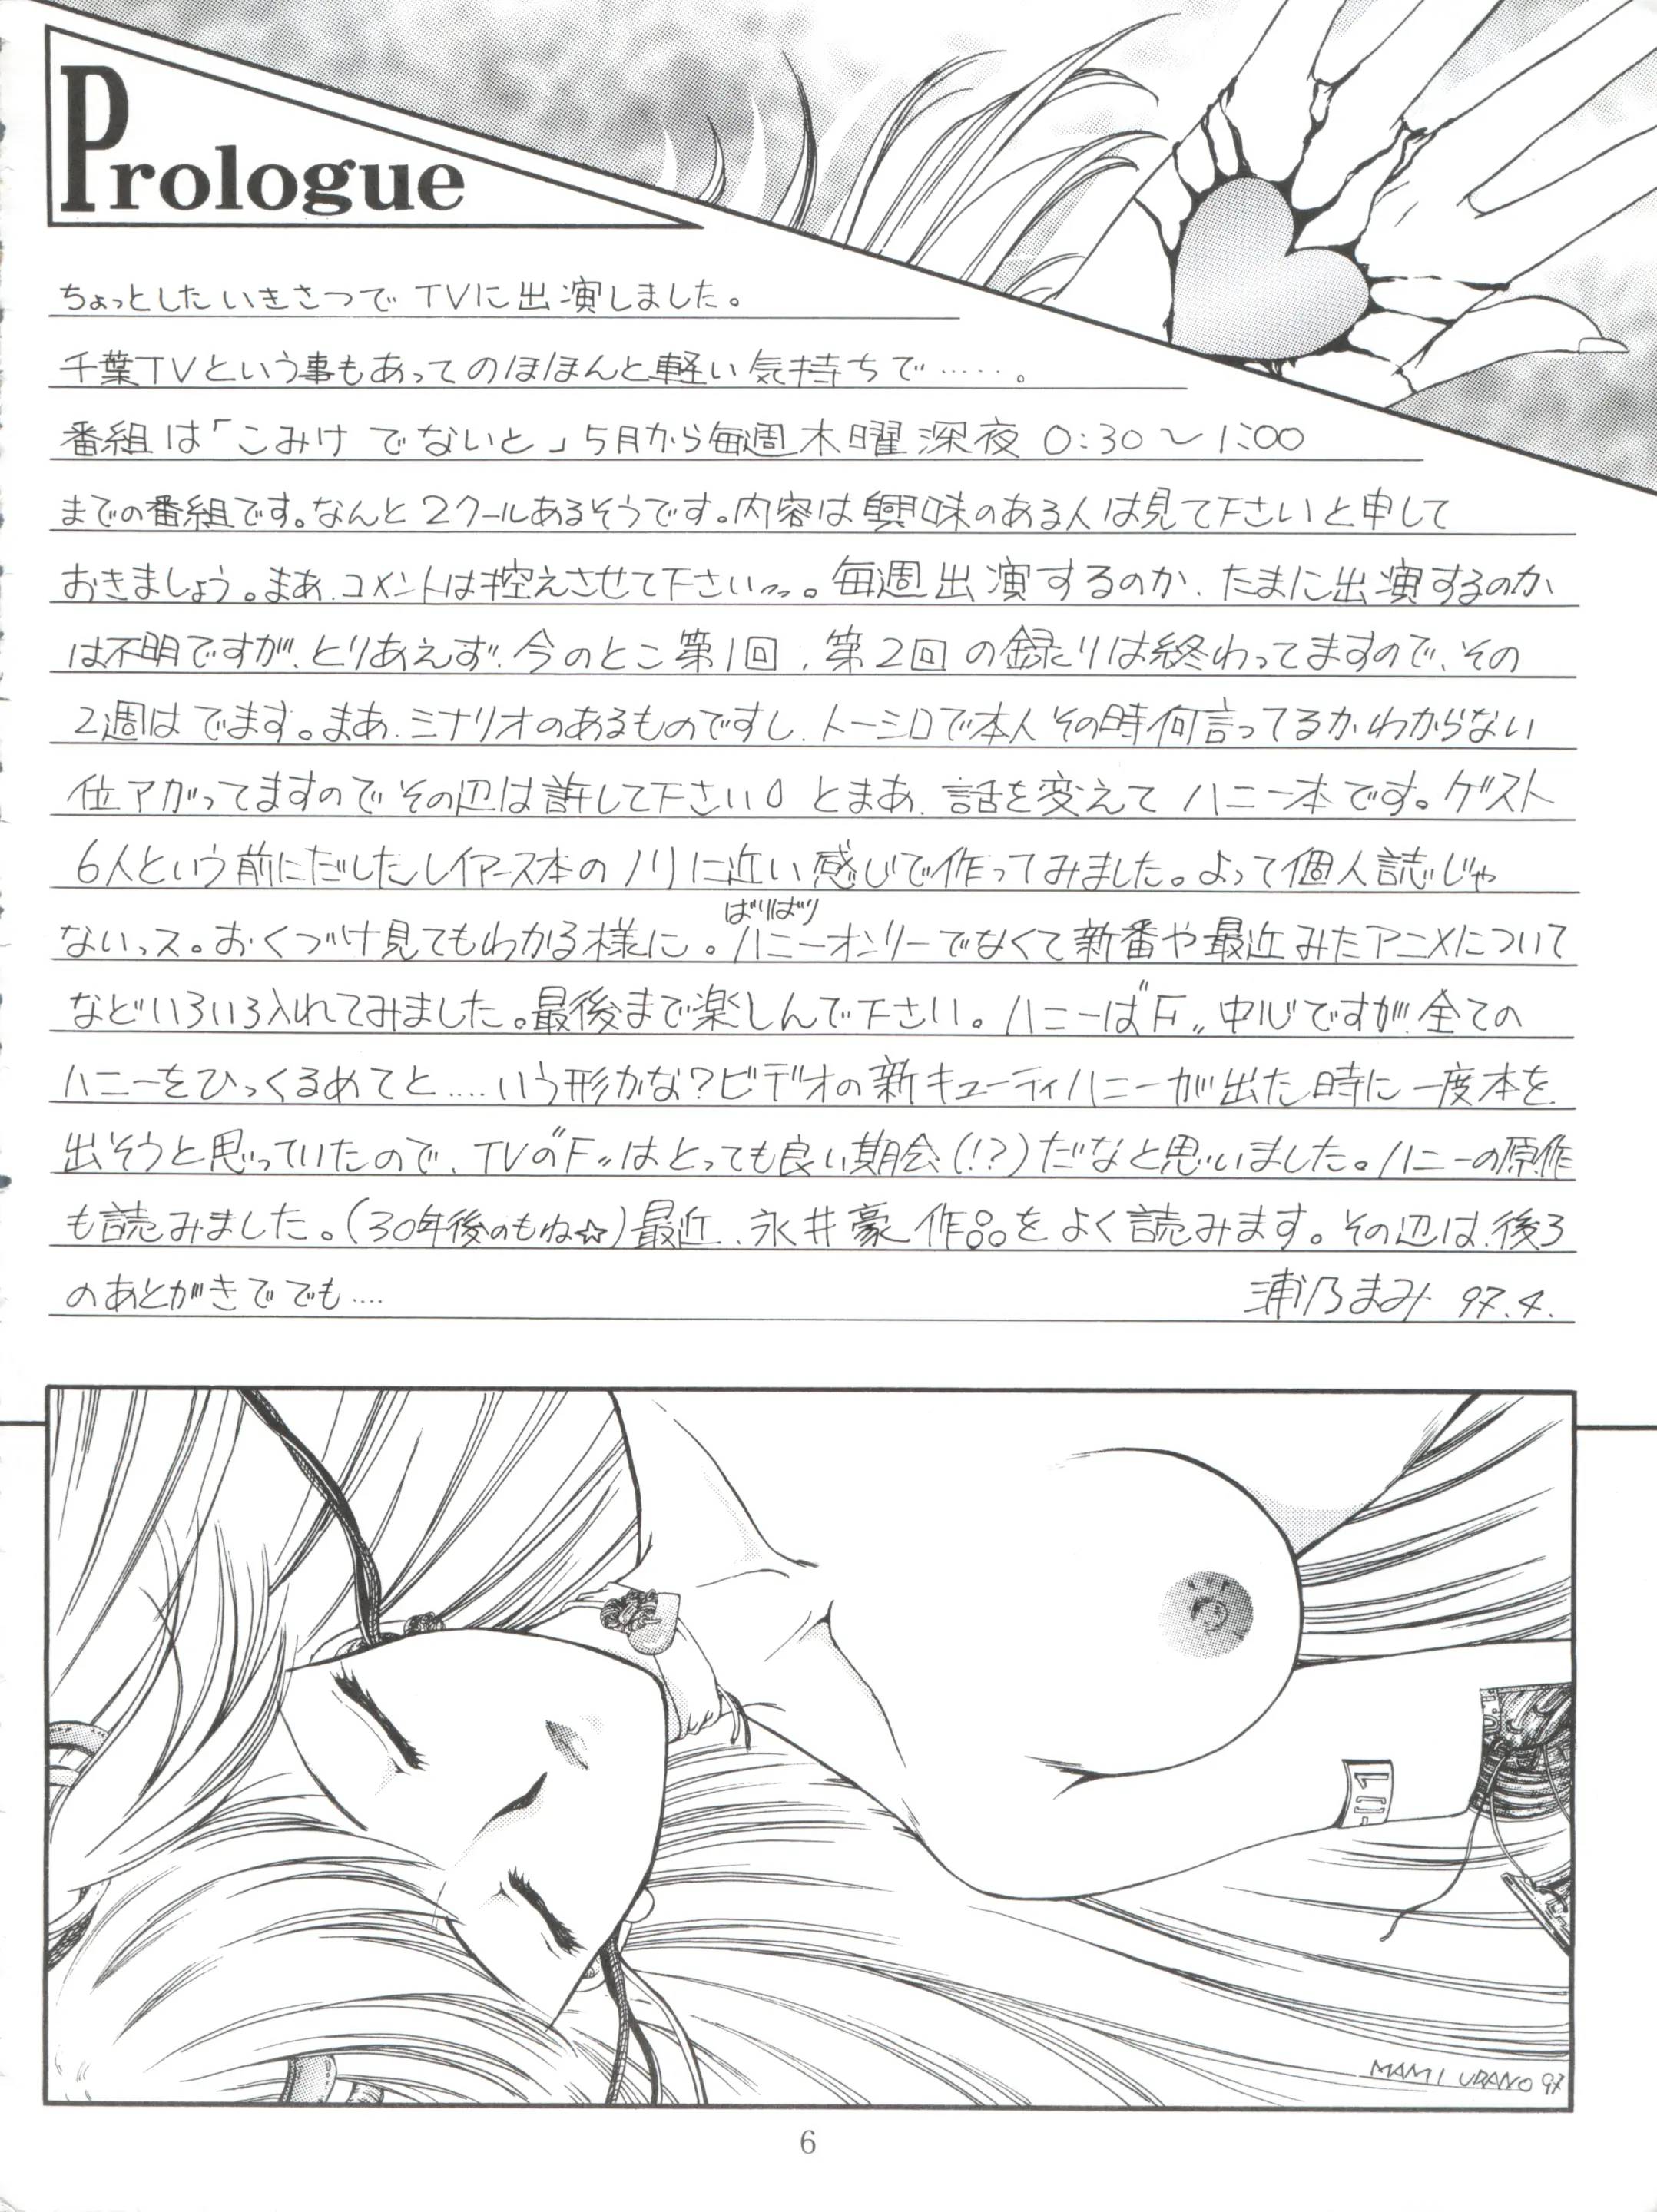 Prologue
ちょっとしたいきさつで TVに出演しました。
千葉TVという事もあってのほほんと軽い気持ちで……。
番組は「こみけ でないと」5月から毎週木曜深夜 0:30〜1:00
までの番組です。なんと2クールあるそうです。内容は興味のある人は見て下さいと申して
おきましょう。まあ、コメントは控えさせて下さいっっ。毎週出演するのか、たまに出演するのか
は不明ですが、とりあえず、今のとこ第1回、第2回の録りは終わってますので、その
2週はでます。まあ、ミナリオのあるものですし、トーシロで本人その時何言ってるかわからない
位アガってますのでその辺は許して下さい とまあ、話を変えて ハニー本です。ゲスト
6人という前にだしたレイアース本のノリに近い感じで作ってみました。よって個人誌じゃ
ないっス。おくづけ見てもわかる様に。ハニーオンリーでなくて新番や最近みたアニメについて
ばりばり
などいろいろ入れてみました。最後まで楽しんで下さい。ハニーは〝F〟中心ですが、全ての
ハニーをひっくるめてと….いう形かな?ビデオの新キューティハニーが出た時に一度本を
出そうと思っていたので、TVの〝F〟はとっても良い期会(!?)だなと思いました。ハニーの原作
も読みました。(30年後のもね☆)最近、永井豪作品をよく読みます。その辺は、後ろ
のあとがきででも….
浦乃まみ 97.4.
-01
MAMI URANO 97
6